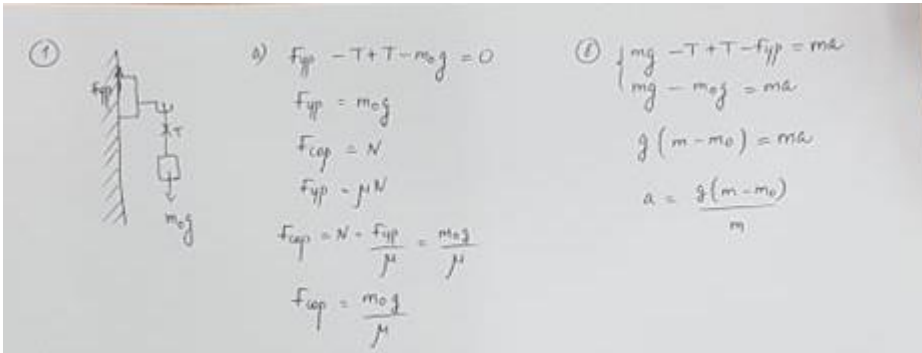 ①
Fтр
T
m₀g
а) Fтр - T + T - m₀g = 0
Fтр = m₀g
Fсор = N
Fтр = μN
Fсор = N = Fтр/μ = m₀g/μ
Fсор = m₀g/μ
б) { mg - T + T - Fтр = ma
mg - m₀g = ma
g(m - m₀) = ma
a = g(m - m₀)/m